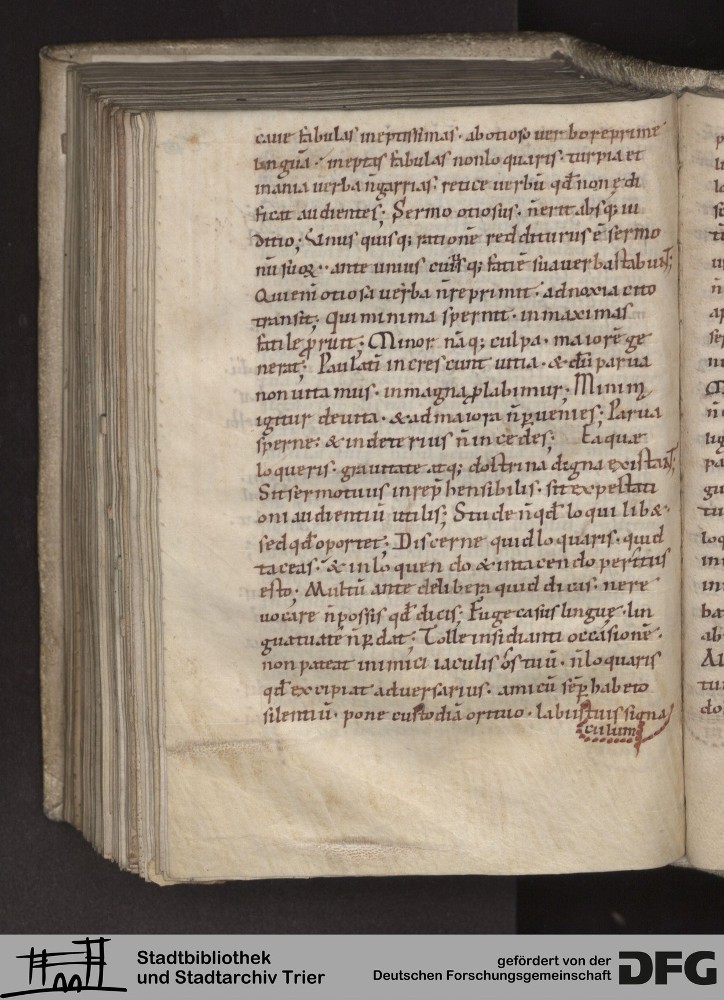 caue fabulas ineptissimas · ab otioso uerbo reprime
linguā · ineptas fabulas non loquaris · turpia et
inania uerba ñ garrias · retice uerbū qđ non ędi
ficat audientes; Sermo otiosus · ñ erit absq; iu
ditio; Unus quisq; rationē redditurus ē sermo
nū suoꝝ · ante unius cuiusq; faciē sua uerba stabunt;
Qui enī otiosa uerba ñ reprimit · ad noxia cito
transit; qui minima spernit · in maximas
facile ꝓruit; Minor nāq; culpa · maiorē ge
nerat; Paulatī increscunt uitia · & dū parua
non uitamus · in magna ꝓlabimur; Minimᷓ
igitur deuita · & ad maiora ñ ꝑuenies; Parua
sperne: & in deterius ñ incedes; Ea quæ
loqueris · grauitate atq; doctrina digna existant;
Sit sermo tuus inrep̄hensibilis · sit expectati
oni audientiū utilis; Stude ñ qđ loqui lib& ·
sed qđ oportet; Discerne quid loquaris · quid
taceas · & in loquendo & in tacendo peritus
esto; Multū ante delibera quid dicas · ne re
uocare ñ possis qđ dicis; Fuge casus linguę · lin
gua tua te ñ ꝑdat; Tolle insidianti occasionē ·
non pateat inimici iaculis os tuū · ñ loquaris
qđ excipiat aduersarius · amicū sēp habeto
silentiū · pone custodiā ori tuo · labiis tuis signa
culum
Stadtbibliothek
und Stadtarchiv Trier
gefördert von der
Deutschen Forschungsgemeinschaft
DFG